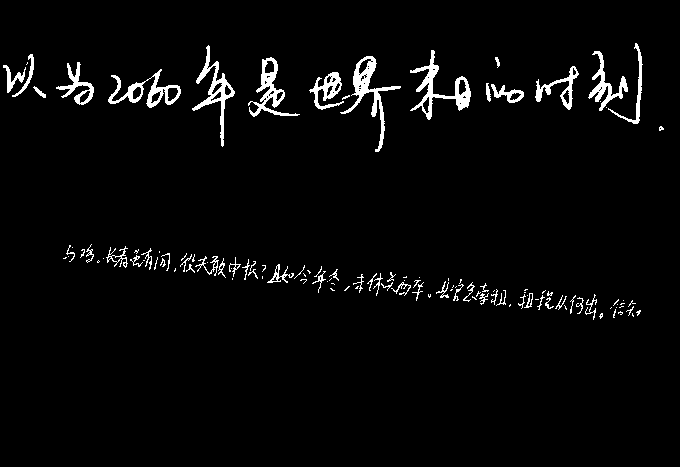 以为2060年是世界末日的时刻.
与鸡。长者虽有问,役夫敢申恨?且如今年冬,未休关西卒。县官急索租,租税从何出。信知